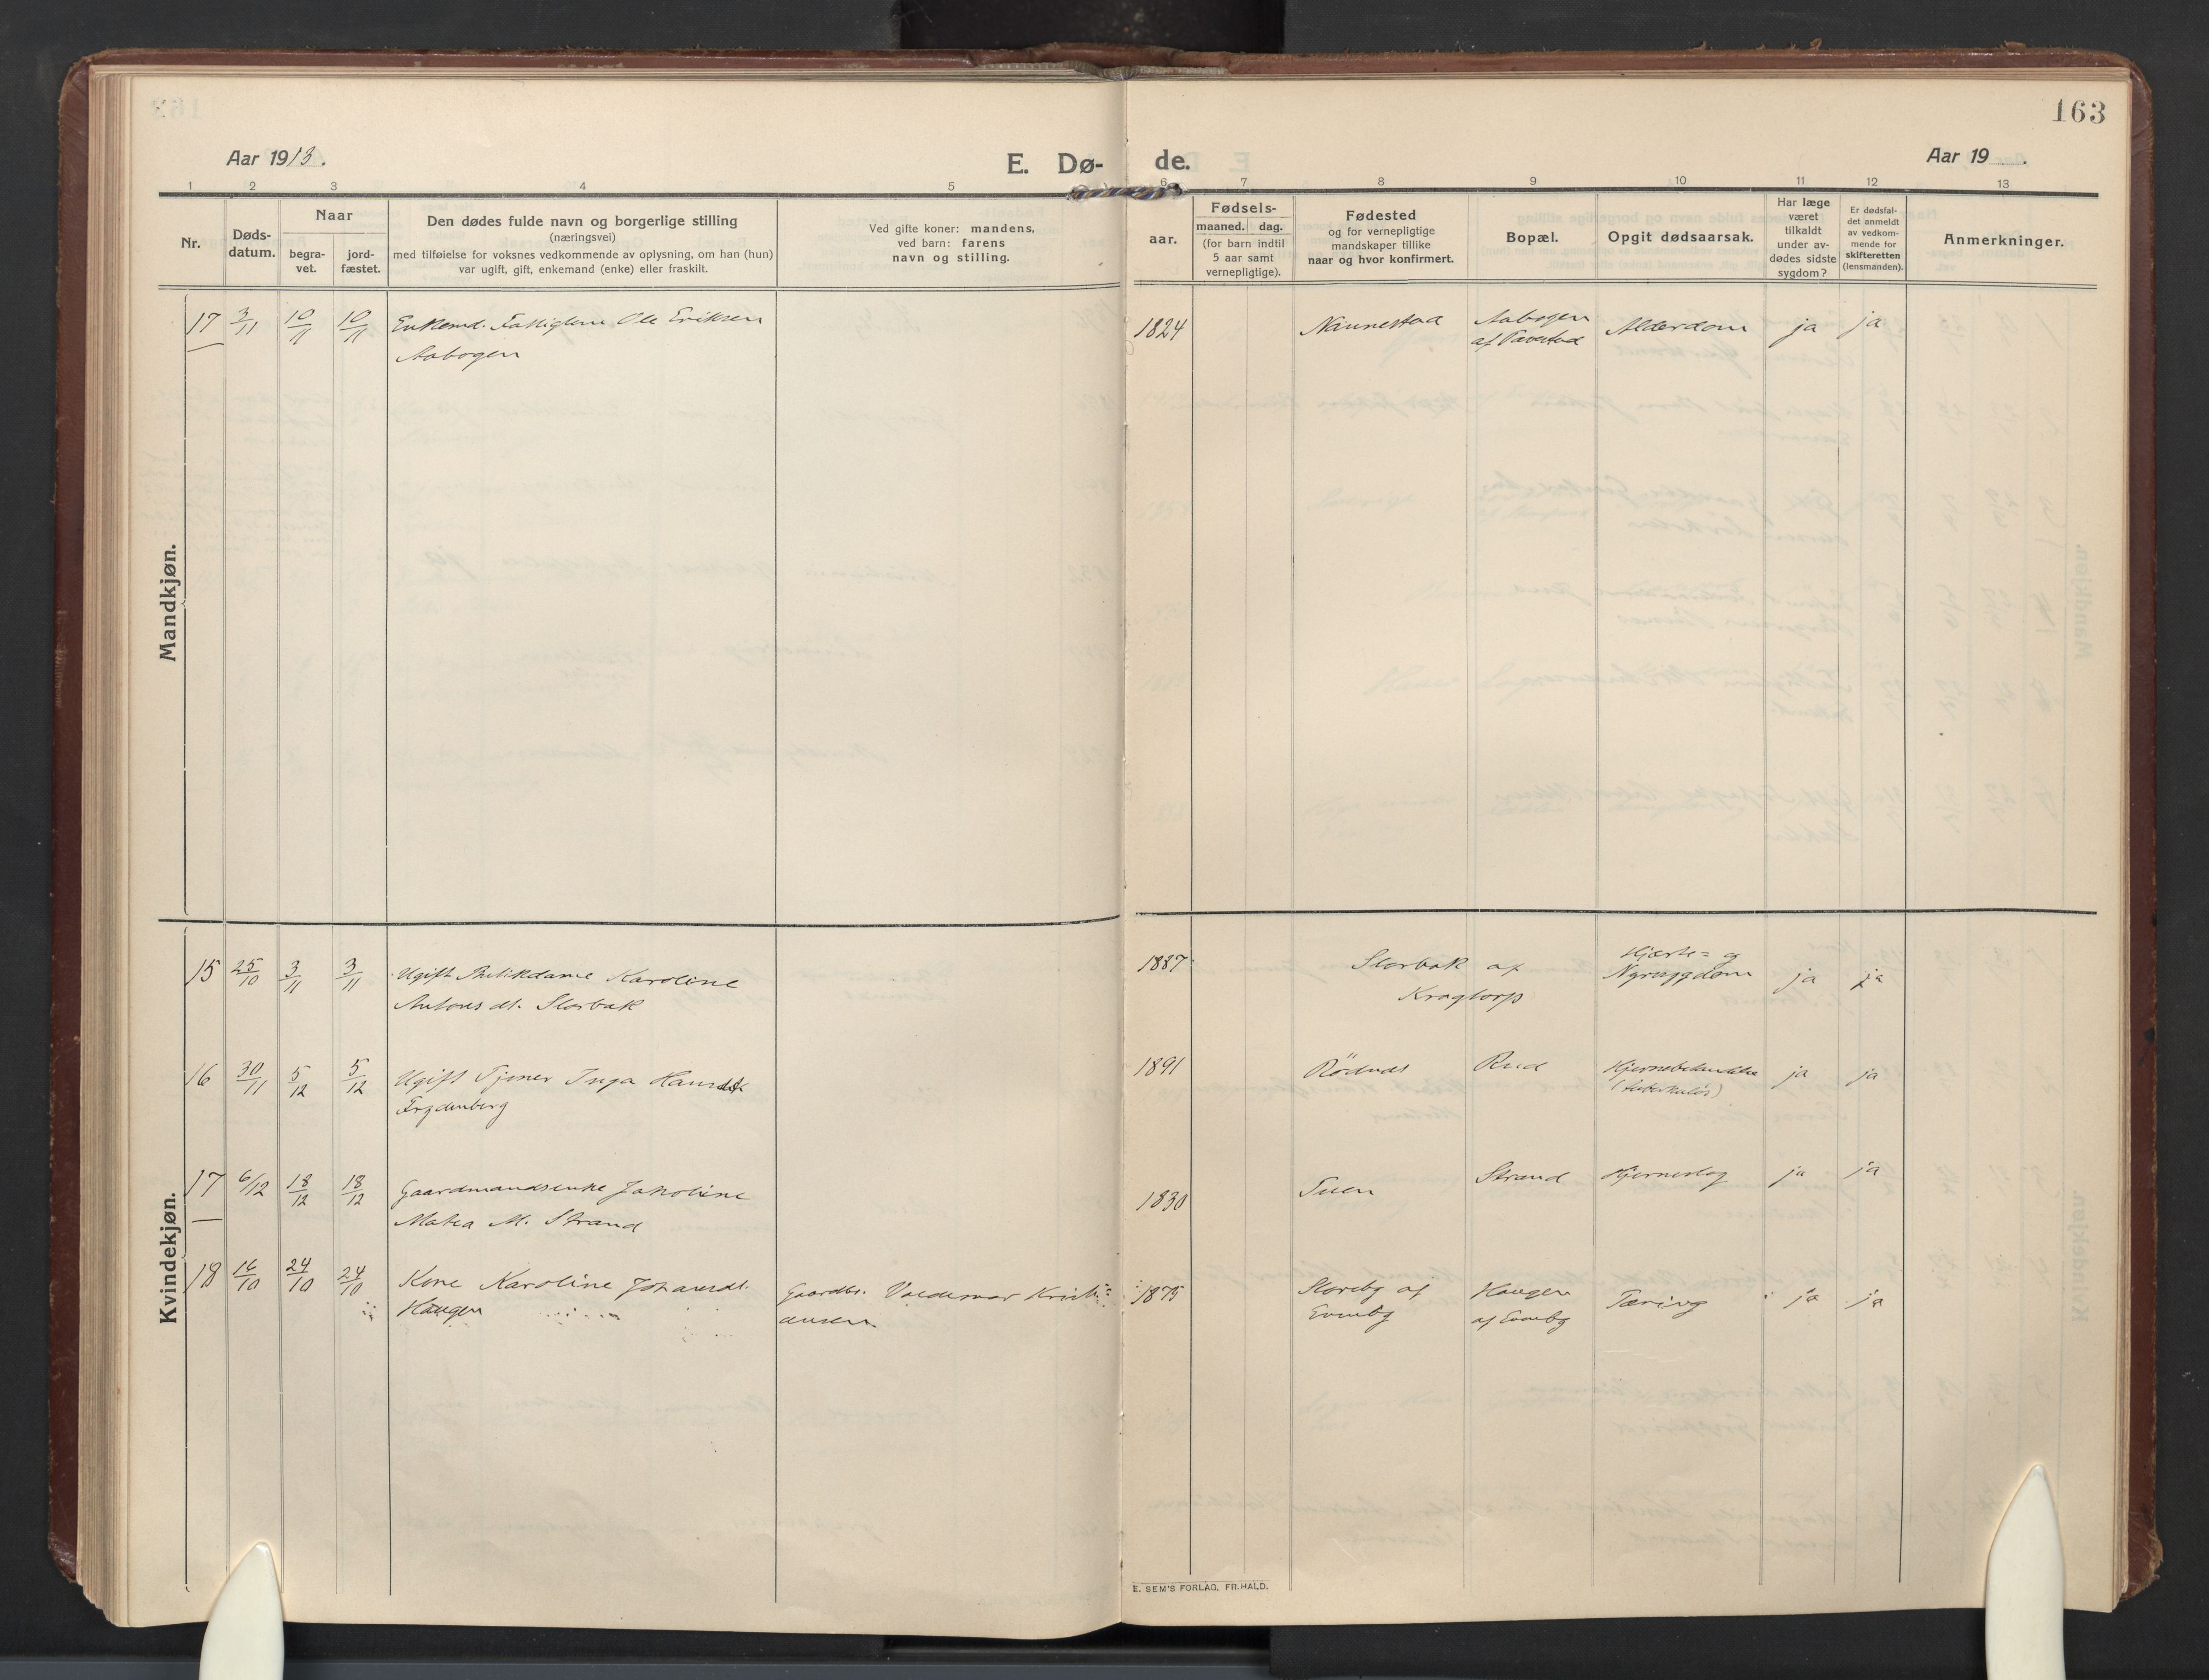 163
Aar 1913.
E. Dø-
de.
Aar 19
1 2 3 4 5 6 7 8 9 10 11 12 13
Nr.
Døds-
datum.
Naar
begra-
vet.
jord-
fæstet.
Den dødes fulde navn og borgerlige stilling
(næringsvei)
med tilføielse for voksnes vedkommende av oplysning, om han (hun)
var ugift, gift, enkemand (enke) eller fraskilt.
Ved gifte koner: mandens,
ved barn: farens
navn og stilling.
aar.
Fødsels-
maaned. dag.
(for barn indtil
5 aar samt
vernepligtige).
Fødested
og for vernepligtige
mandskaper tillike
naar og hvor konfirmert.
Bopæl.
Opgit dødsaarsak.
Har læge
været
tilkaldt
under av-
dødes sidste
sygdom?
Er dødsfal-
det anmeldt
av vedkom-
mende for
skifteretten
(lensmanden).
Anmerkninger.
Mandkjøn.
17 3/11 10/11 10/11 Enkemd. Fattiglem Ole Eriksen 1824 Nannestad Aabogen Alderdom ja ja
Aabogen af
Kvindekjøn.
15 25/10 3/11 3/11 Ugift Butikdame Karoline 1887 Storbak af Hjærte= og ja ja
Antonsdt. Storbak Kragtorp
16 30/11 5/12 5/12 Ugift Tjener Inga Hansdt 1891 Rödnes Rud ja ja
Frydenberg (tuberkuløs)
17 6/12 18/12 18/12 Gaardmandsenke Jakobine 1830 Tuen Strand Hjerneslag ja ja
Matea M. Strand
18 16/10 24/10 24/10 Kone Karoline Johansdt. Gaardbr. Valdemar Kristi= 1875 Storeby af Haugen Tæring ja ja
Haugen ansen. Evenby af Evenby
E. SEM'S FORLAG, FR.HALD.